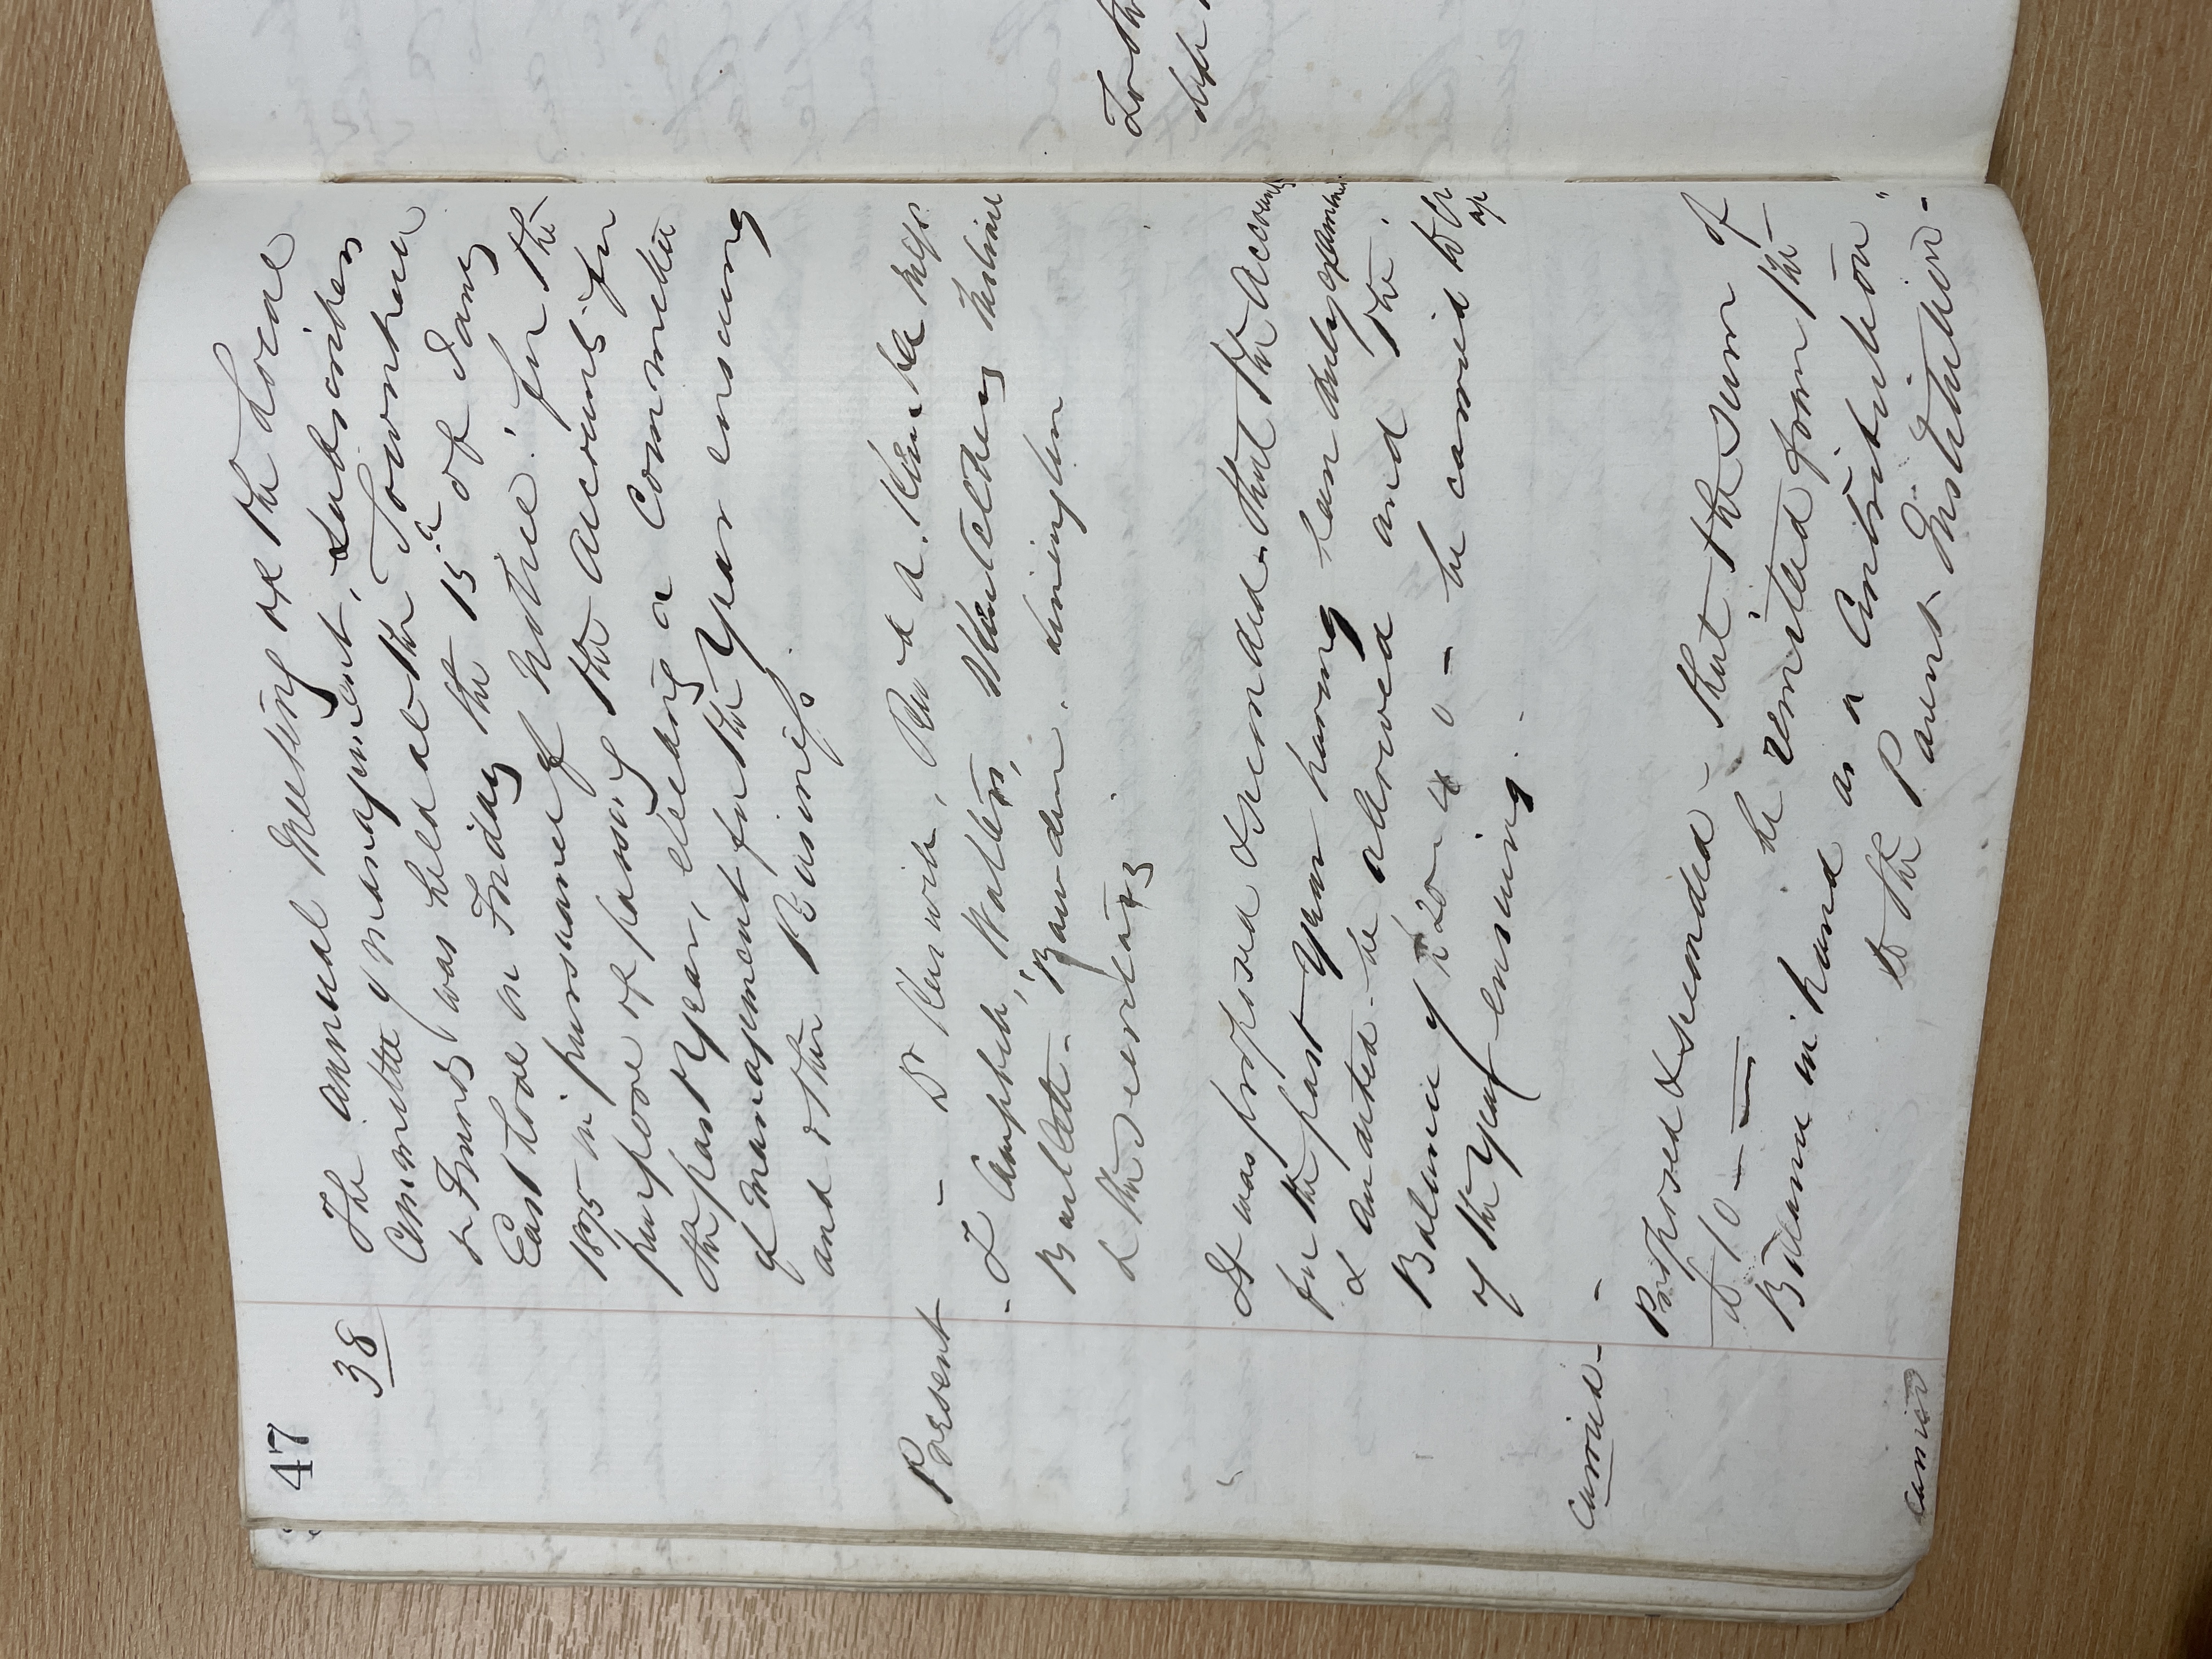 47
38
The annual Meeting of the Local
Committee of Management, Subscribers
& Friends was held at the Townhall
East Looe on Friday the 15 of Jany
1875 in pursuance of notice, for the
purpose of passing the accounts for
the past Year, electing a Committee
of Management for the Year ensuing
and other Business.
Present - Dr Kerswill, Revd A.
- T Campbell, Walters,
Bartlett - Bowden.
& the Secretary
It was proposed & seconded - that the Accounts
for the past Year having been duly examined
& audited - be allowed and the
Balance of £20 - 4 0 - be carried to Cr
of the Year ensuing.
Carried -
Proposed & seconded - that the sum of
£10 — — be remitted from the
Balance in hand as a Contribution
to the Parent Institution -
Carried